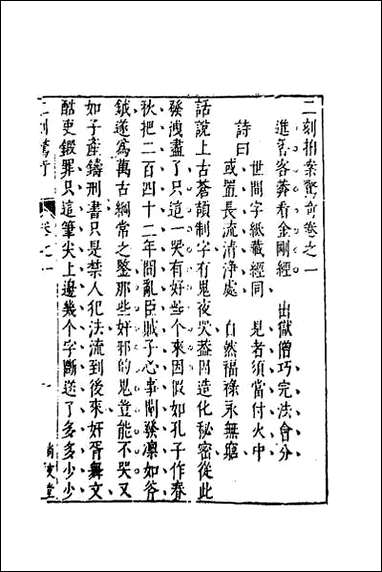 二刻拍案驚奇卷之一
進香客莽看金剛經 出獄僧巧完法會分
詩曰
世間字紙藏經同 見者須當付火中
或置長流清淨處 自然福祿永無窮
話說上古蒼頡制字有鬼夜哭蓋因造化秘密從此
發洩盡了只這一哭有好些个來因假如孔子作春
秋把二百四十二年間亂臣賊子心事闡發凛如斧
鉞遂為萬古綱常之鑒那些奸邪的鬼豈能不哭又
如子產鑄刑書只是禁人犯法流到後來奸胥舞文
酷吏鍛罪只這筆尖上邊幾个字斷送了多多少少
二刻驚奇 卷之一 一 尚友堂